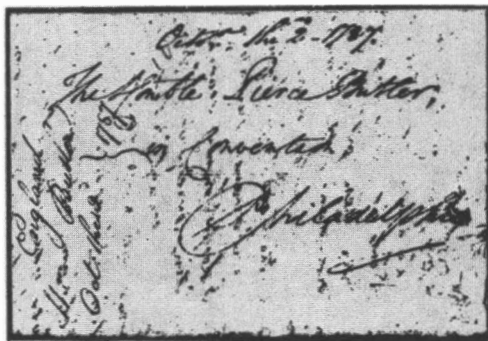 Octor. the 2 - 1787.
The Honble Pierce Butler,
in Convention,
Philadelphia
England
Butler
1787